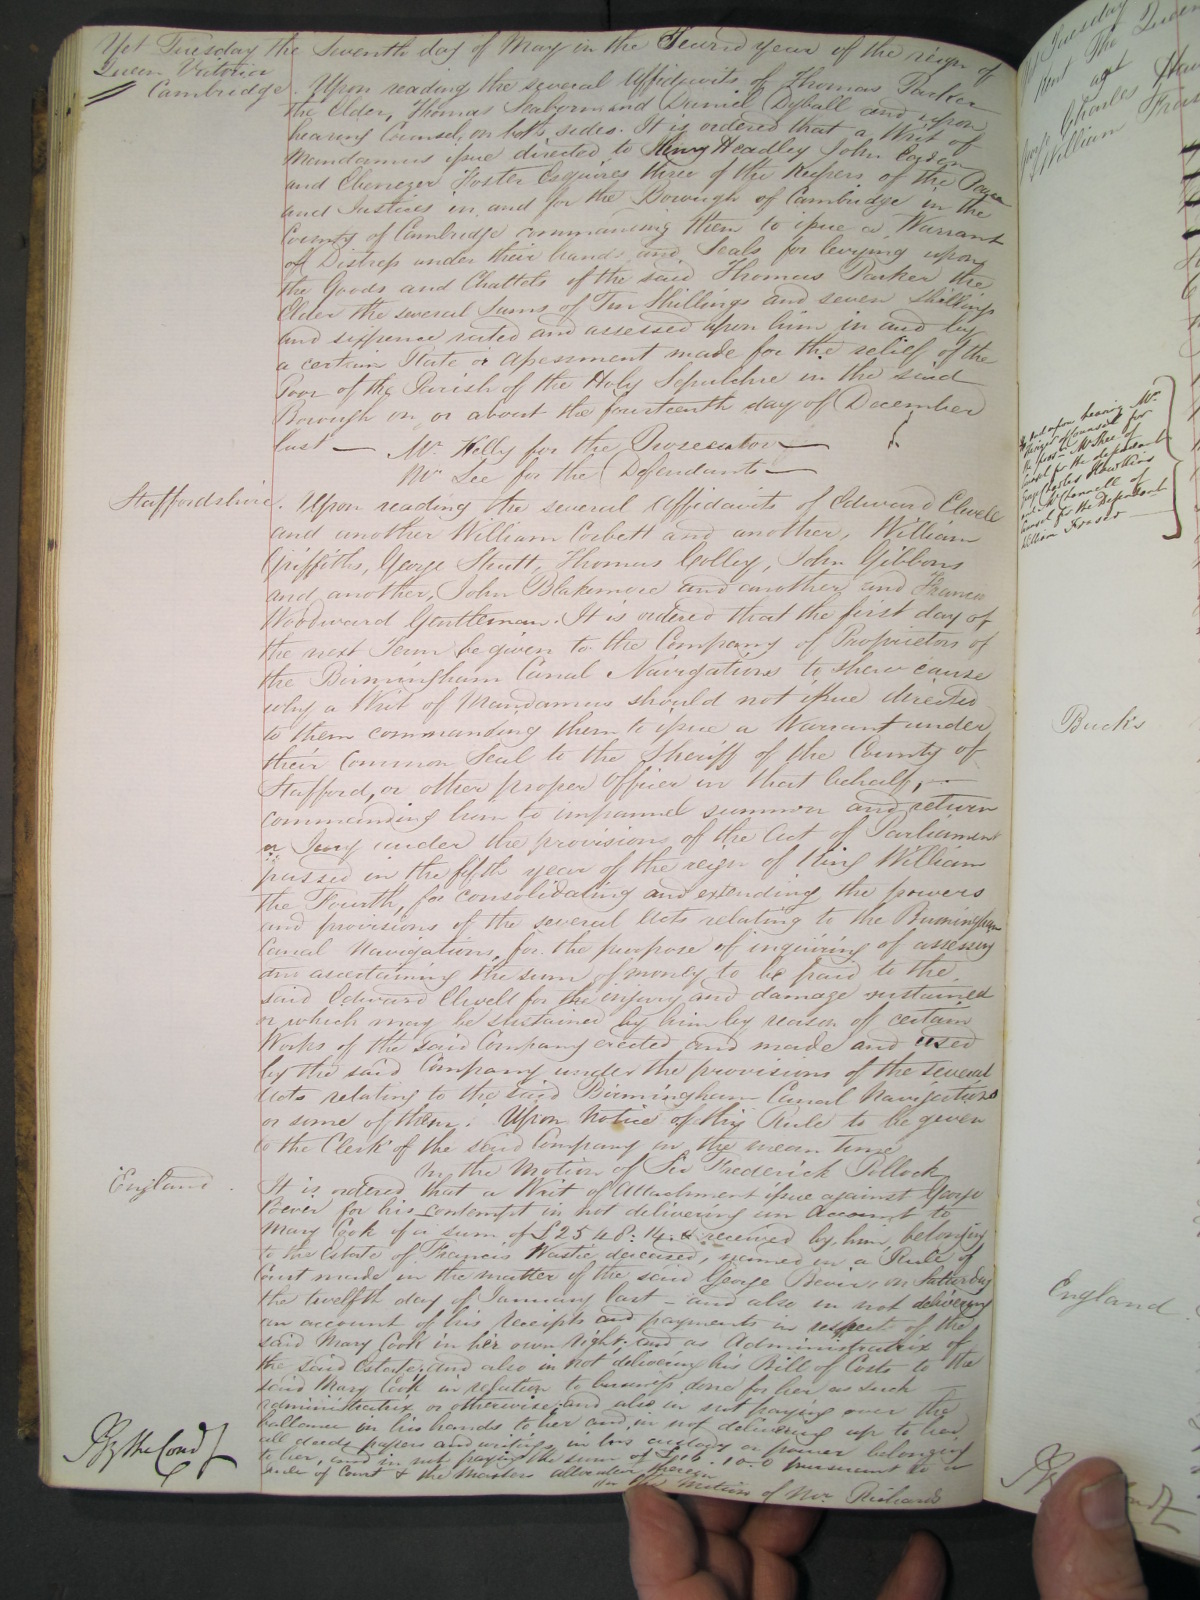 Yet Tuesday the Seventh day of May in the Second year of the reign of
Queen Victoria
Cambridge. Upon reading the several Affidavits of Thomas Parker
the Elder, Thomas and Daniel Dyball and upon
hearing Counsel on both sides. It is ordered that a Writ of
Mandamus issue directed to Henry Headley John
and Ebenezer Foster Esquires three of the Keepers of the Peace
and Justices in and for the Borough of Cambridge in the
County of Cambridge commanding them to issue a Warrant
of Distress under their hands and Seals for levying upon
the Goods and Chattels of the said Thomas Parker the
Elder the several Sums of Ten Shillings and seven Shillings
and sixpence rated and assessed upon him in and by
a certain Rate or Assessment made for the relief of the
Poor of the Parish of the Holy Sepulchre in the said
Borough on or about the fourteenth day of December
last — Mr. Kelly for the Prosecutor —
Mr Lee for the Defendants —
Staffordshire. Upon reading the several Affidavits of Edward Elwell
and another William Corbett and another, William
Griffiths, George Strutt, Thomas Colley, John Gibbons
and another, John Blakemore and another and Francis
Woodward Gentleman. It is ordered that the first day of
the next Term be given to the Company of Proprietors of
the Birmingham Canal Navigations to shew cause
why a Writ of Mandamus should not issue directed
to them commanding them to issue a Warrant under
their Common Seal to the Sheriff of the County of
Stafford, or other proper Officer in that behalf, —
commanding him to impannel summon and return
a Jury under the provisions of the Act of Parliament
passed in the fifth year of the reign of King William
the Fourth, for consolidating and extending the powers
and provisions of the several Acts relating to the Birmingham
Canal Navigations, for the purpose of inquiring of assessing
and ascertaining the sum of money to be paid to the
said Edward Elwell for the injury and damage sustained
or which may be sustained by him by reason of certain
Works of the said Company erected and made and used
by the said Company under the provisions of the several
Acts relating to the said Birmingham Canal Navigations
or some of them: Upon Notice of this Rule to be given
to the Clerk of the said Company in the mean time
On the Motion of Sir Frederick Pollock
England. It is ordered that a Writ of Attachment issue against George
Bever for his contempt in not delivering an Account to
Mary Cook of a sum of £2548: 14. & received by him, belonging
to the Estate of Francis Wastie deceased, named in a Rule of
Court made in the matter of the said George Bever, on Saturday
the twelfth day of January last — and also in not delivering
an account of his receipts and payments in respect of the
said Mary Cook in her own right, and as Administratrix of
the said Estate, and also in not delivering his Bill of Costs to the
said Mary Cook in relation to business done for her as such —
administratrix or otherwise and also in not paying over the
ballance in his hands to her and in not delivering up to her
all deeds papers and writings in his custody or power belonging
to her, and in not paying the sum of £ 10.0 pursuant to a
rule of Court & the Masters allocatur thereon
On the Motion of Mr. Richards
By the Court
Yet Tuesday
Kent The Queen
agt
Charles
William Fraser
upon hearing Mr.
of Counsel for
Mr Shee of
Counsel for the defendant
Charles Hawkins
and Mr Connell of
Counsel for the Defendant
William Fraser —
Bucks
England